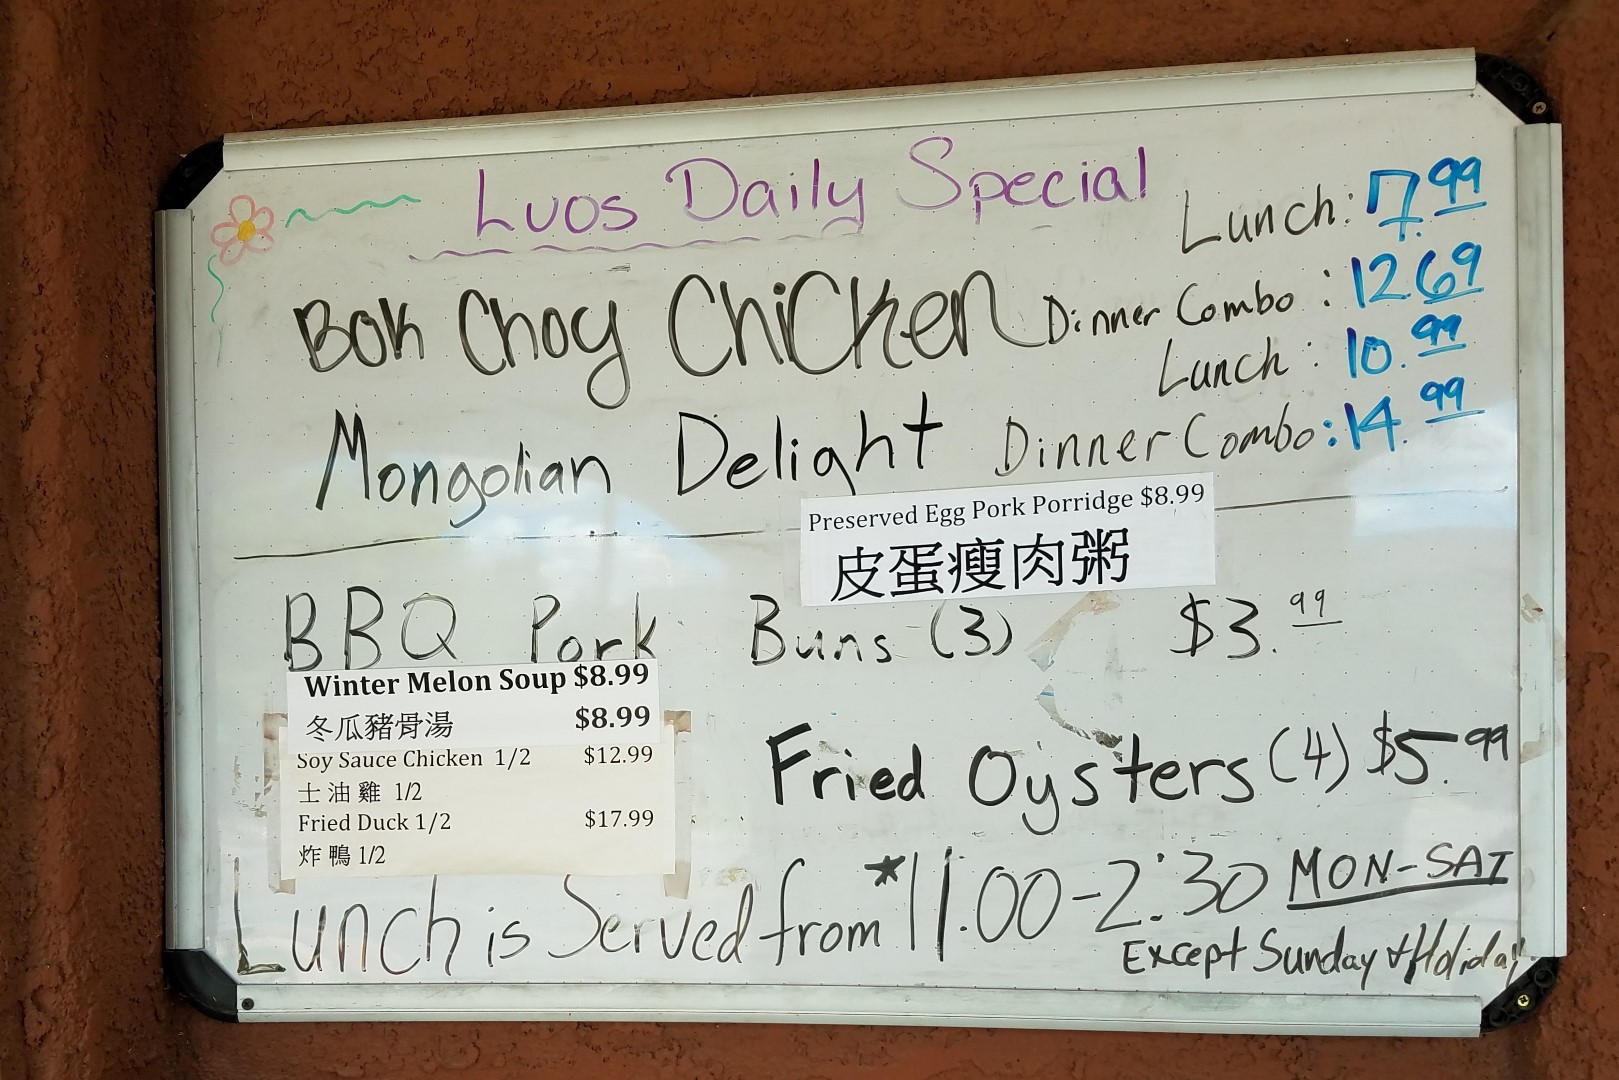 Luos Daily Special
Lunch: 7.99
Bok Choy Chicken Dinner Combo: 12.69
Lunch: 10.99
Mongolian Delight Dinner Combo: 14.99
Preserved Egg Pork Porridge $8.99
皮蛋瘦肉粥
BBQ Pork Buns (3) $3.99
Winter Melon Soup $8.99
冬瓜豬骨湯 $8.99
Soy Sauce Chicken 1/2 $12.99
士油雞 1/2
Fried Duck 1/2 $17.99
炸鴨 1/2
Fried Oysters (4) $5.99
Lunch is Served from *11:00-2:30 MON-SAT
Except Sunday & Holiday